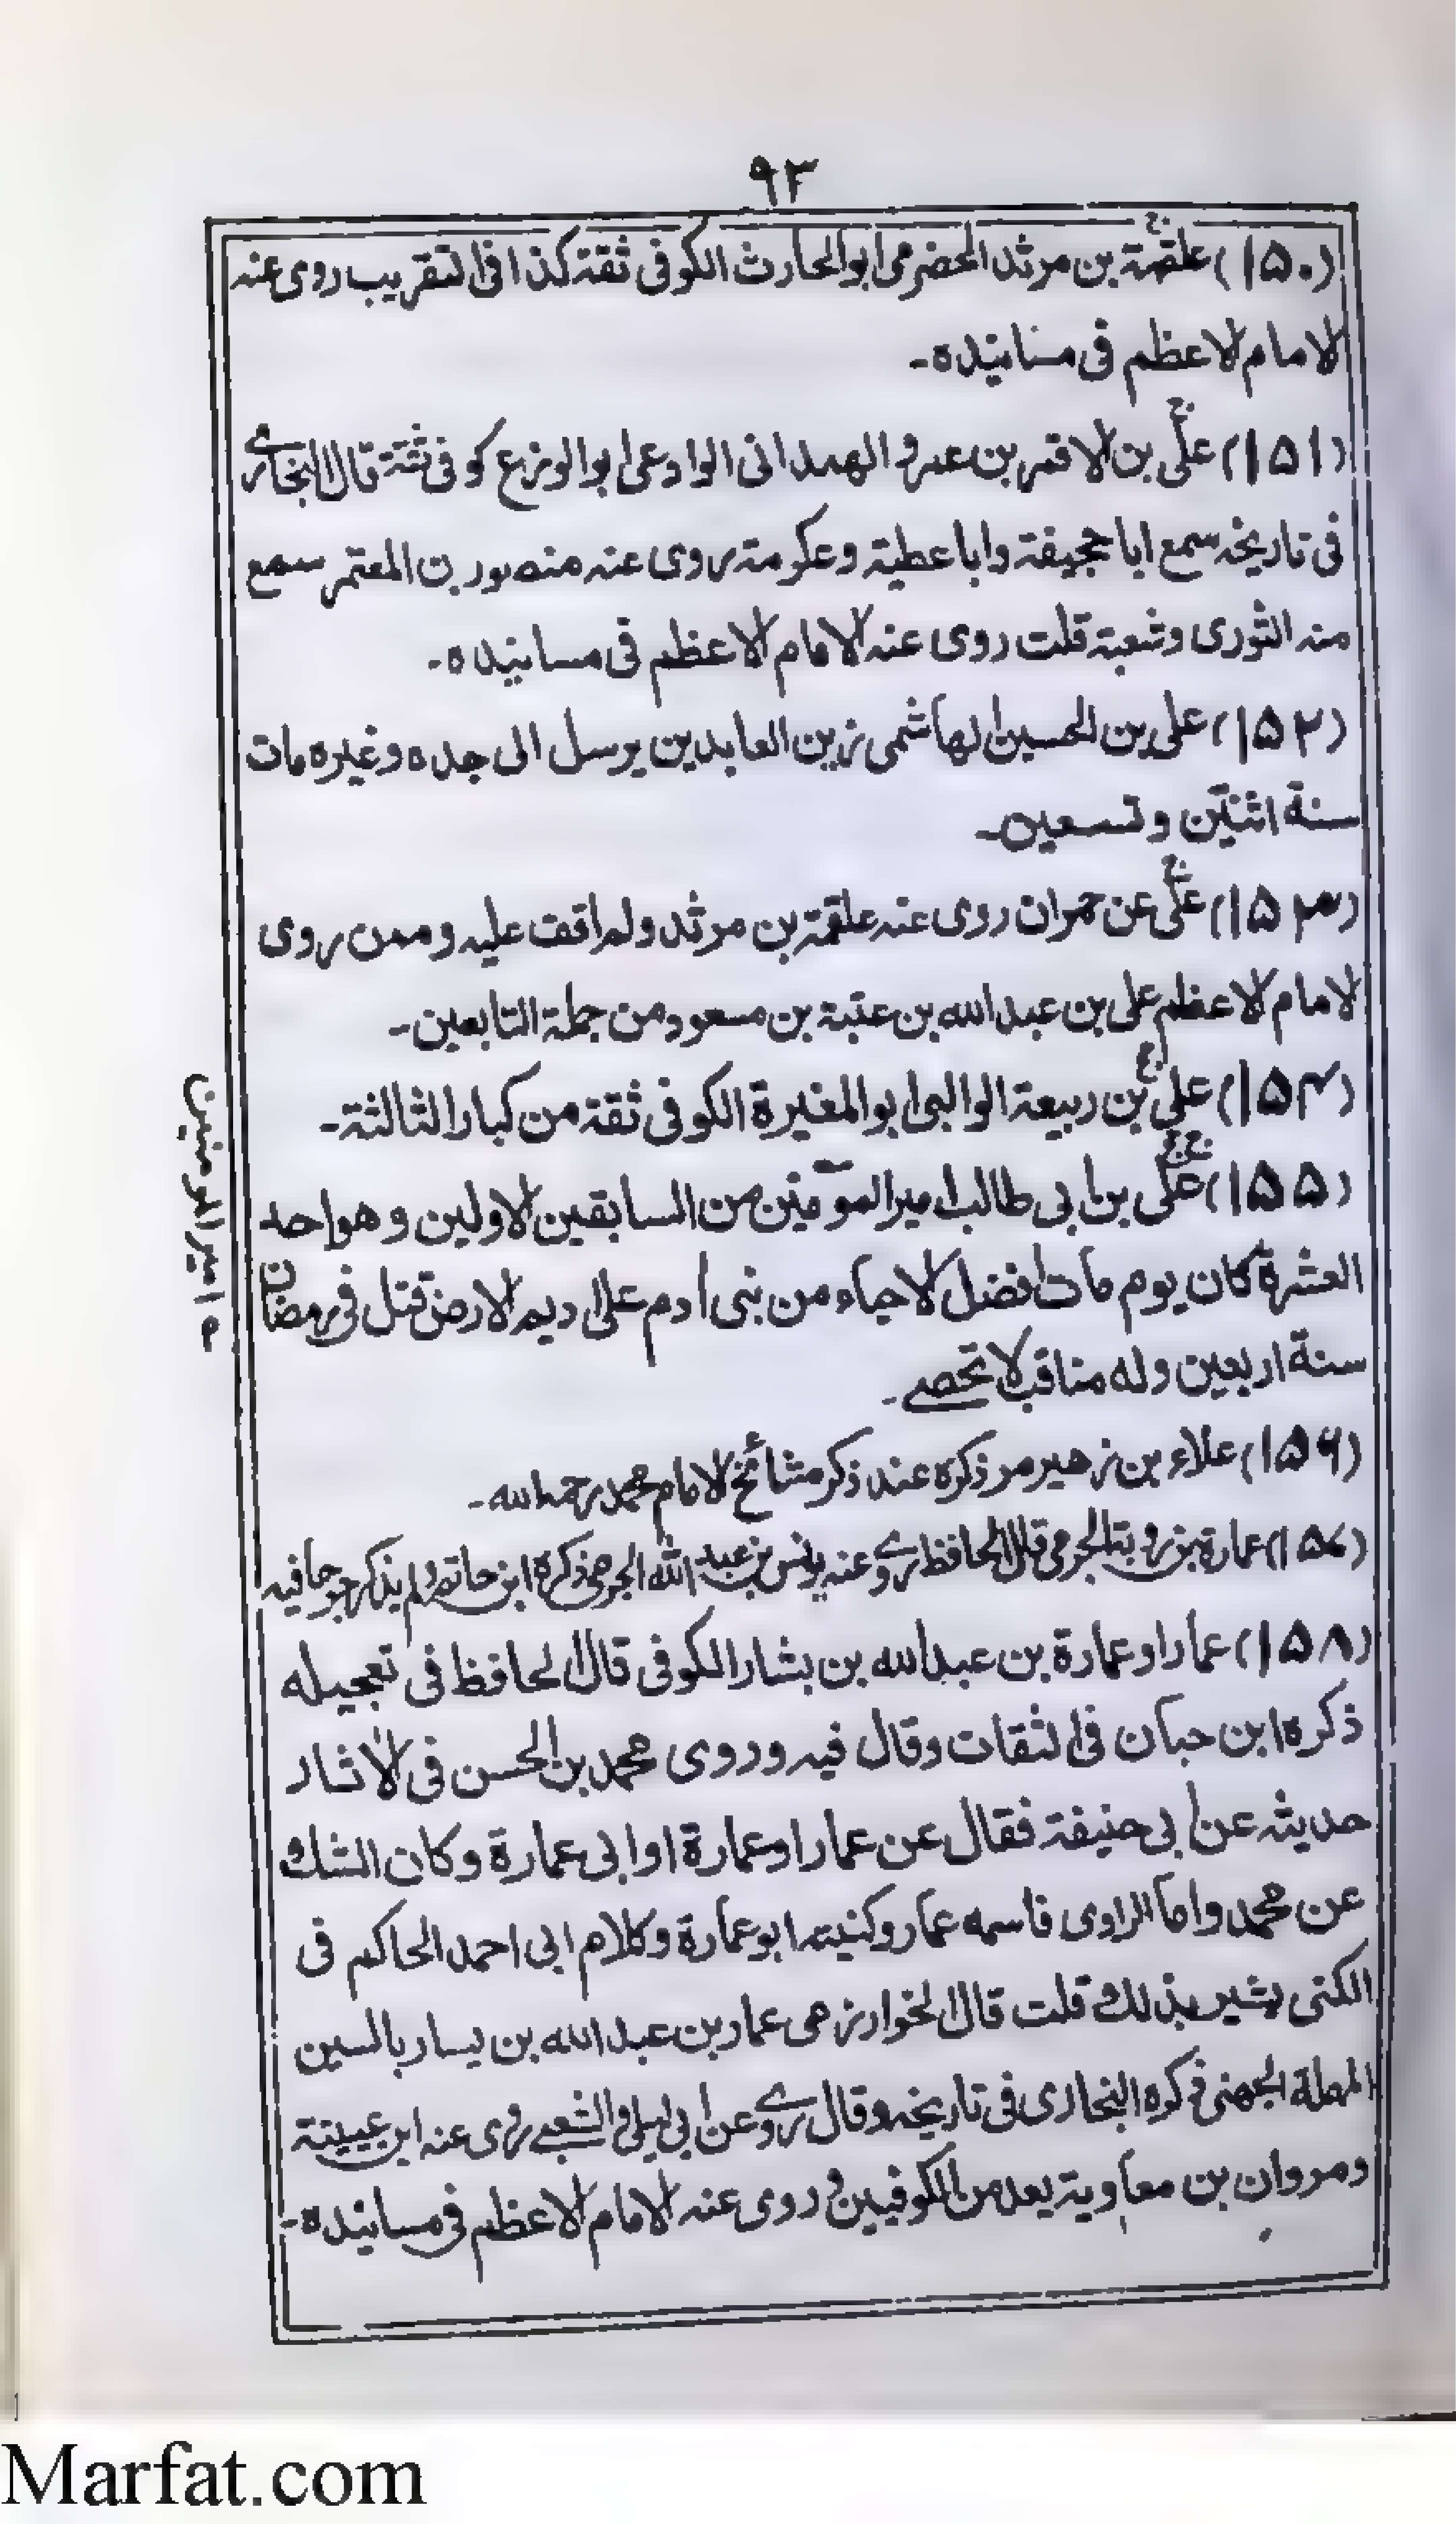 ۹۳
(۱۵۰) علقمة بن مرثد الحضرمی ابوالحارث الکوفی ثقة کذا فی التقریب روی عنه
الامام الاعظم فی مسانیده۔
(۱۵۱) علی بن الاقمر بن عمرو الهمدانی الوادعی ابوالوزع کوفی ثقة قال البخاری
فی تاریخه سمع ابا جحیفة وابا عطیة وعکرمة روی عنه منصور بن المعتمر سمع
منه الثوری وشعبة قلت روی عنه الامام الاعظم فی مسانیده۔
(۱۵۲) علی بن الحسین الهاشمی زین العابدین یرسل الی جده وغیره مات
سنة اثنتین وتسعین۔
(۱۵۳) علی عن حمران روی عنه علقمة بن مرثد ولم اقف علیه وممن روی
الامام الاعظم علی بن عبدالله بن عتبة بن مسعود من جملة التابعین۔
(۱۵۴) علی بن ربیعة الوالبی ابوالمغیرة الکوفی ثقة من کبار الثالثة۔
(۱۵۵) علی بن ابی طالب امیر المؤمنین من السابقین الاولین وهو احد
العشرة کان یوم مات افضل الاحیاء من بنی آدم علی ادیم الارض قتل فی رمضان
سنة اربعین وله مناقب لا تحصی۔
(۱۵۶) علاء بن زهیر مر ذکره عند ذکر مشائخ الامام محمد رحمه الله۔
(۱۵۷) عمارة بن روبة الجرمی قال الحافظ روی عنه یونس بن عبد الله الجرمی ذکره ابن حاتم ولم یذکر جرحا فیه
(۱۵۸) عمار او عمارة بن عبدالله بن بشار الکوفی قال الحافظ فی تعجیله
ذکره ابن حبان فی الثقات وقال فیه وروی محمد بن الحسن فی الآثار
حدیثه عن ابی حنیفة فقال عن عمار او عمارة او ابی عمارة وکان الشك
عن محمد واما الراوی فاسمه عمار وکنیته ابو عمارة وکلام ابی احمد الحاکم فی
الکنی یشیر بذلك قلت قال الخوارزمی عمار بن عبدالله بن یسار بالسین
المهملة الجهنی ذکره البخاری فی تاریخه وقال روی عن ابی لیلی والشعبی روی عنه ابن عیینة
ومروان بن معاویة یعد من الکوفیین و روی عنه الامام الاعظم فی مسانیده۔
امیر المومنین
Marfat.com